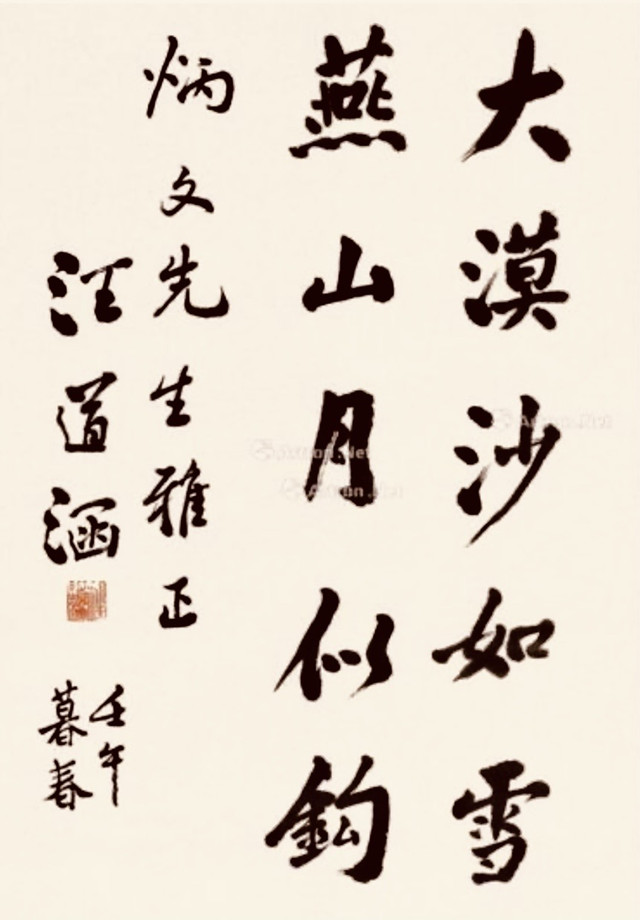 大漠沙如雪
燕山月似鈎
炳文先生雅正
汪道涵
壬午
暮春